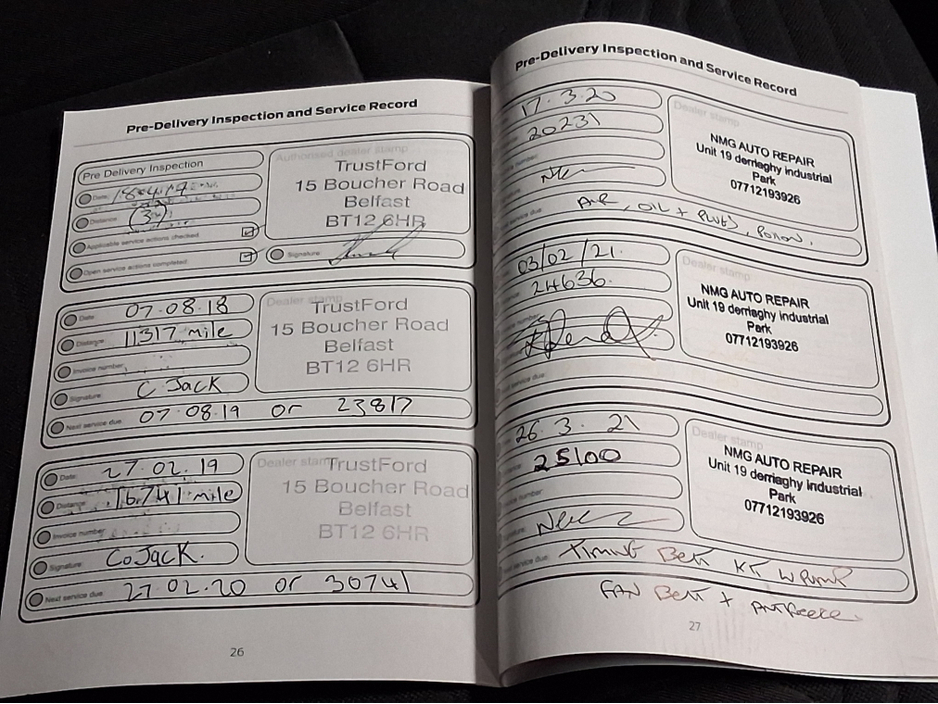 Pre-Delivery Inspection and Service Record
Pre Delivery Inspection
Date:
Distance:
Applicable service actions checked
Open service actions completed
Authorised dealer stamp
TrustFord
15 Boucher Road
Belfast
BT12 6HR
Signature
Date 07.08.18
Distance 11317 mile
Invoice number
Signature C Jack
Next service due 07.08.19 or 23817
Dealer stamp
TrustFord
15 Boucher Road
Belfast
BT12 6HR
Date 27.02.19
Distance 16741 mile
Invoice number
Signature CoJack.
Next service due 27.02.20 or 30741
Dealer stamp
TrustFord
15 Boucher Road
Belfast
BT12 6HR
26
Pre-Delivery Inspection and Service Record
17.3.20
20231
number
service due AIR, OIL + PLUGS, POLLEN.
Dealer stamp
NMG AUTO REPAIR
Unit 19 derriaghy industrial
Park
07712193926
03/02/21.
24636.
service due
Dealer stamp
NMG AUTO REPAIR
Unit 19 derriaghy industrial
Park
07712193926
26.3.21
25100
number
service due Timing Belt KIT W PUMP
FAN Belt + Antifreeze
Dealer stamp
NMG AUTO REPAIR
Unit 19 derriaghy industrial
Park
07712193926
27